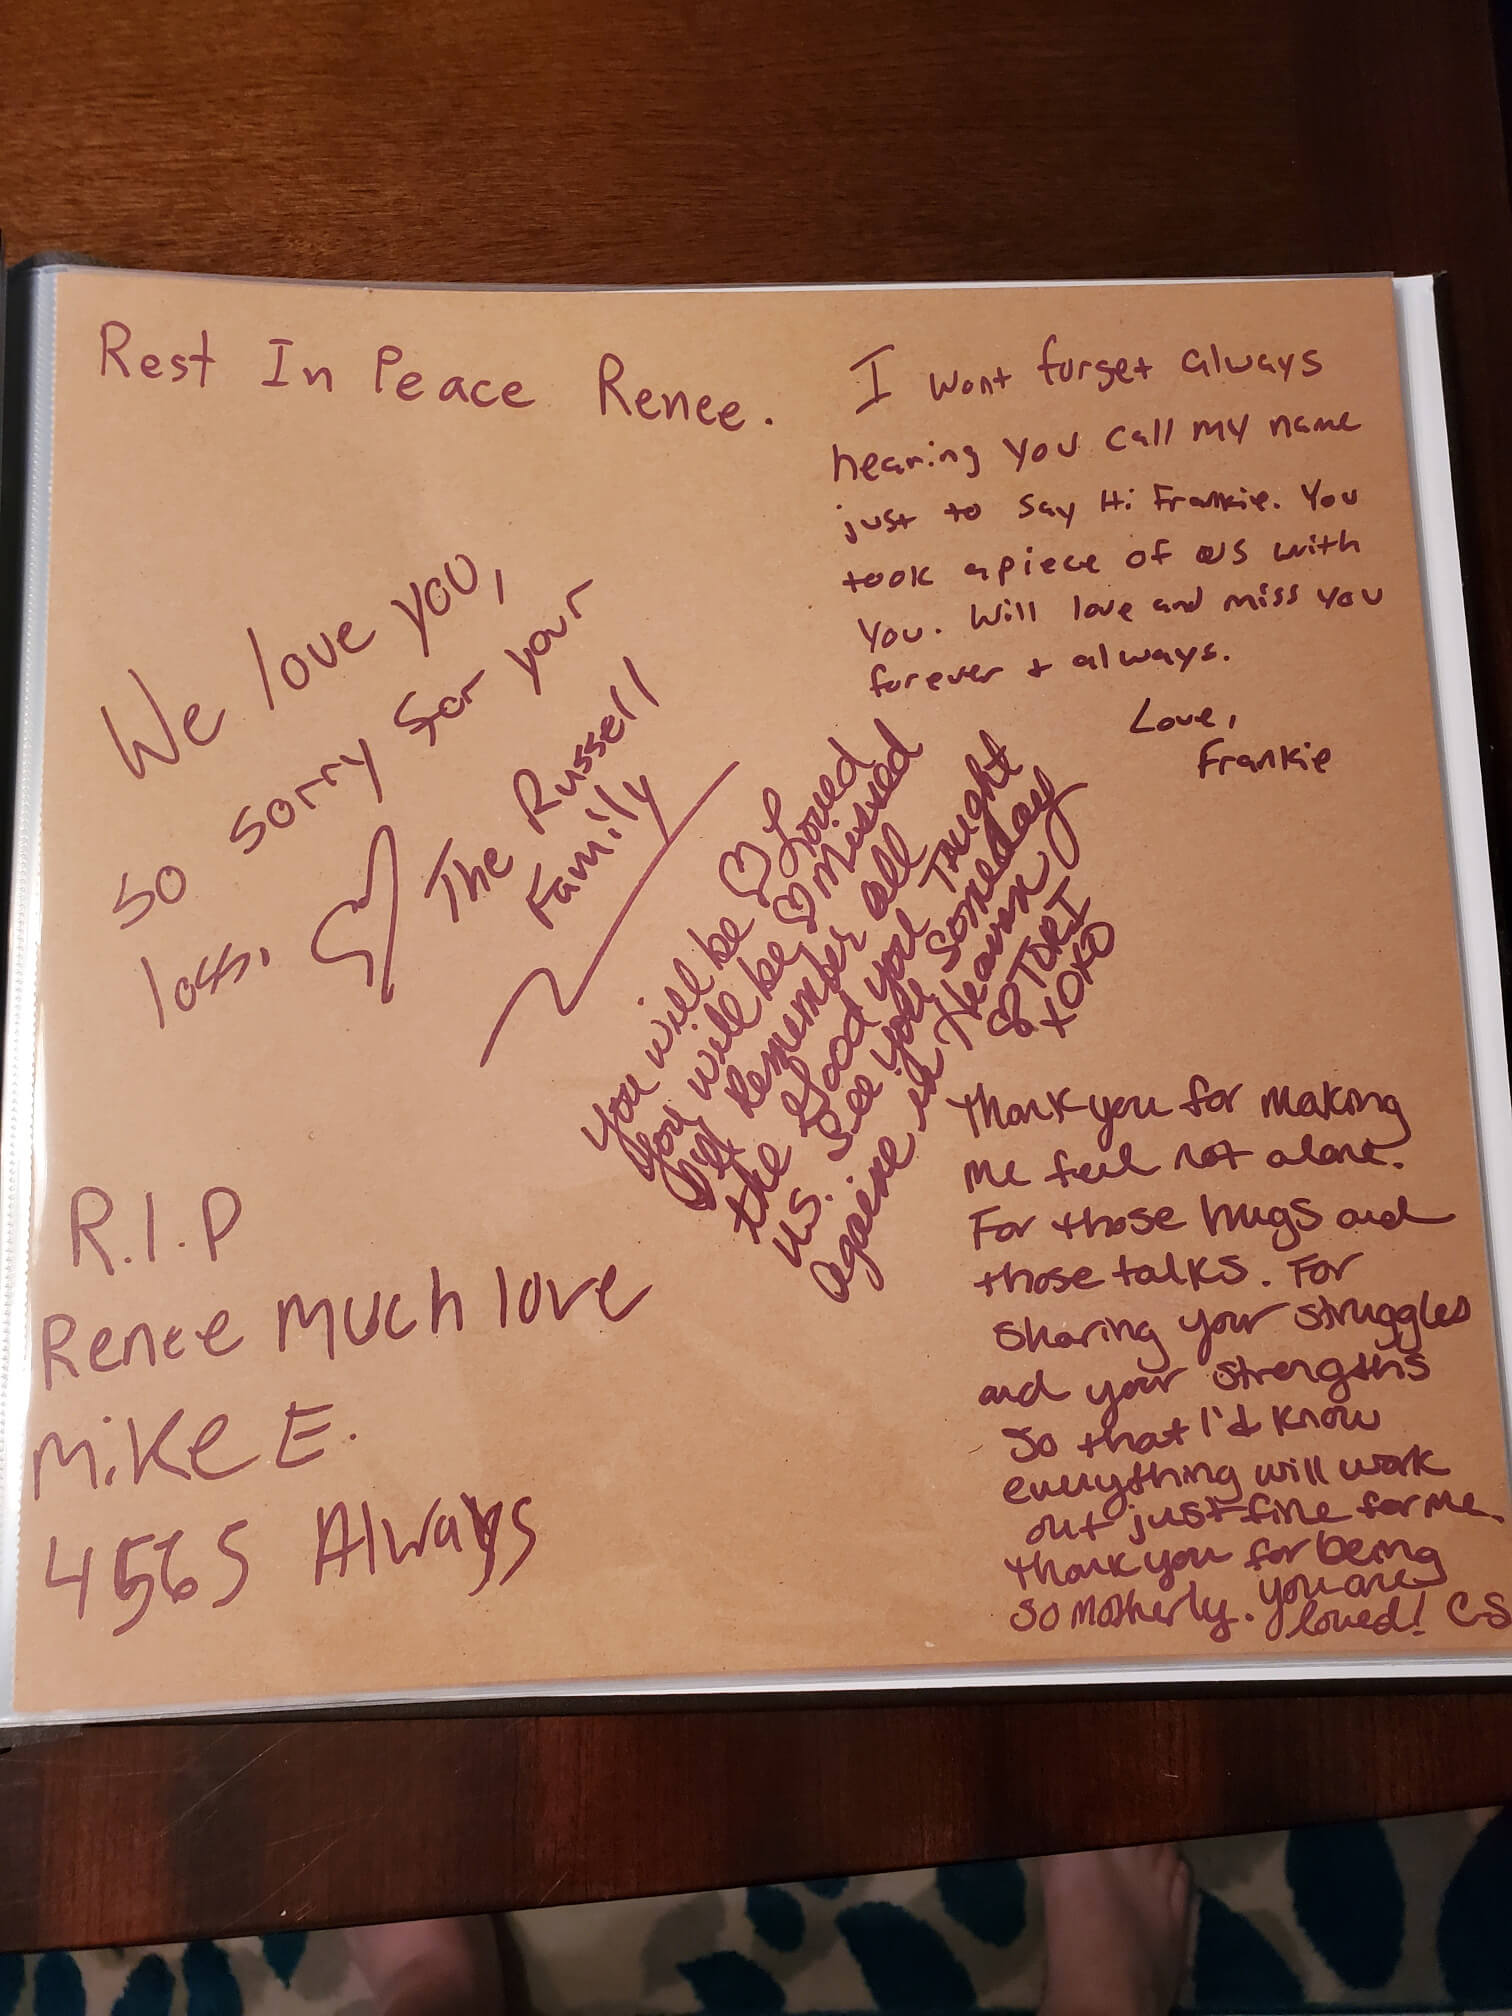 Rest In Peace Renee.
I wont forget always
hearing you call my name
just to say Hi Frankie. You
took a piece of us with
you. Will love and miss you
forever + always.
Love,
Frankie
We love you,
so sorry for your
loss.
The Russell
Family
You will be ♡ Loved
You will be ♡ missed
Remember all
the Good you TAught
us. See you Someday
againe in Heaven
TORI
XOXO
R.I.P
Renee much love
Mike E.
4565 Always
Thank you for making
me feel not alone.
For those hugs and
those talks. For
sharing your struggles
and your strengths
so that I'd know
everything will work
out just fine for me.
Thank you for being
so motherly. You are
loved! CS